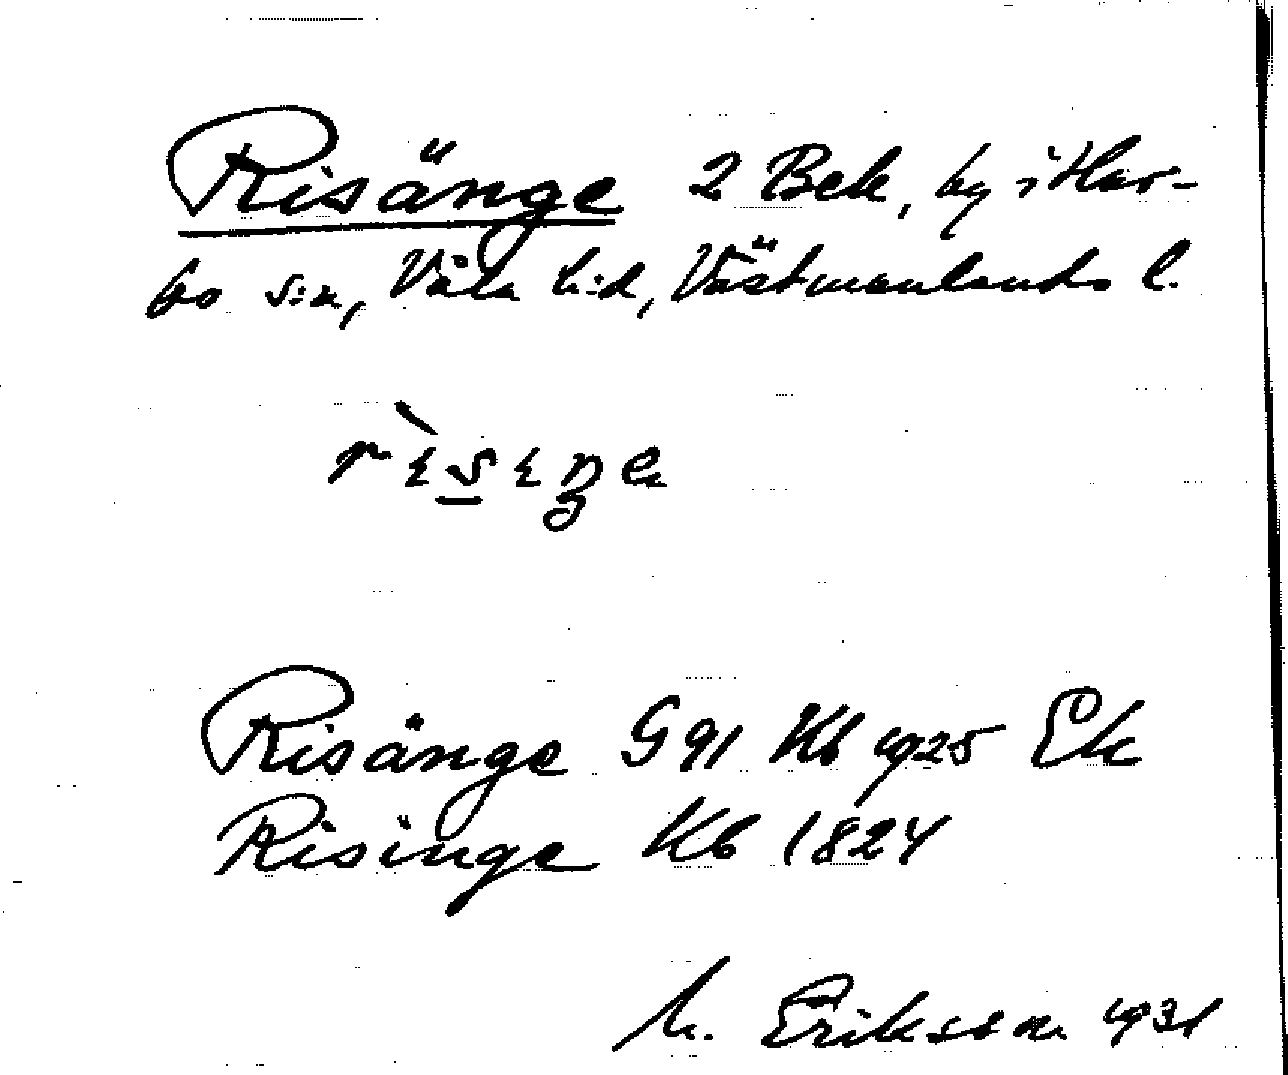 Risänge 2 Bek, by i Har-
bo s:n, Våla h:d, Västmanlands l.
Risänge G 91 Kb 1925 Ek
Risinge Kb 1824
M. Eriksson 1931